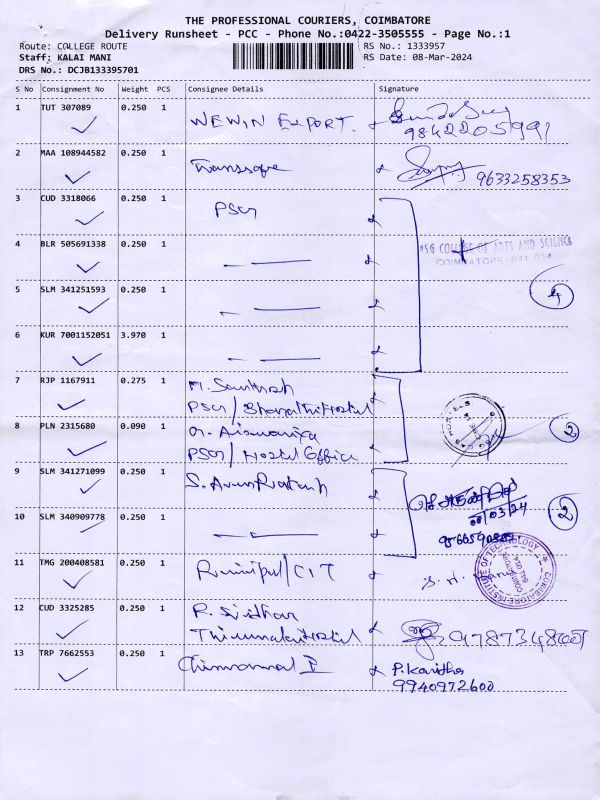 THE PROFESSIONAL COURIERS, COIMBATORE
Delivery Runsheet - PCC - Phone No.:0422-3505555 - Page No.:1
Route: COLLEGE ROUTE RS No.: 1333957
Staff: KALAI MANI RS Date: 08-Mar-2024
DRS No.: DCJB133395701
S No Consignment No Weight PCS Consignee Details Signature
1 TUT 307089 0.250 1 WEWIN EXPORT.
9842205991
2 MAA 108944582 0.250 1 Transsafe 9633258353
3 CUD 3318066 0.250 1 PSG
4 BLR 505691338 0.250 1 PSG COLLEGE OF ARTS AND SCIENCE
COIMBATORE-641 014
5 SLM 341251593 0.250 1 4
6 KUR 7001152051 3.970 1
7 RJP 1167911 0.275 1 M. Santhosh
PSG / Bharathi Hostel
HOSTELS
8 PLN 2315680 0.090 1 G. Aiswariya 2
PSG / Hostel Office
9 SLM 341271099 0.250 1 S. Arun Prakash
08/03/24 2
10 SLM 340909778 0.250 1
11 TMG 200408581 0.250 1 Principal / CIT S. H.
COIMBATORE INSTITUTE OF TECHNOLOGY
COIMBATORE 641 014
12 CUD 3325285 0.250 1 R. Sridhar
Thirumalai Hostel
13 TRP 7662553 0.250 1 P. Kavitha
9940972600